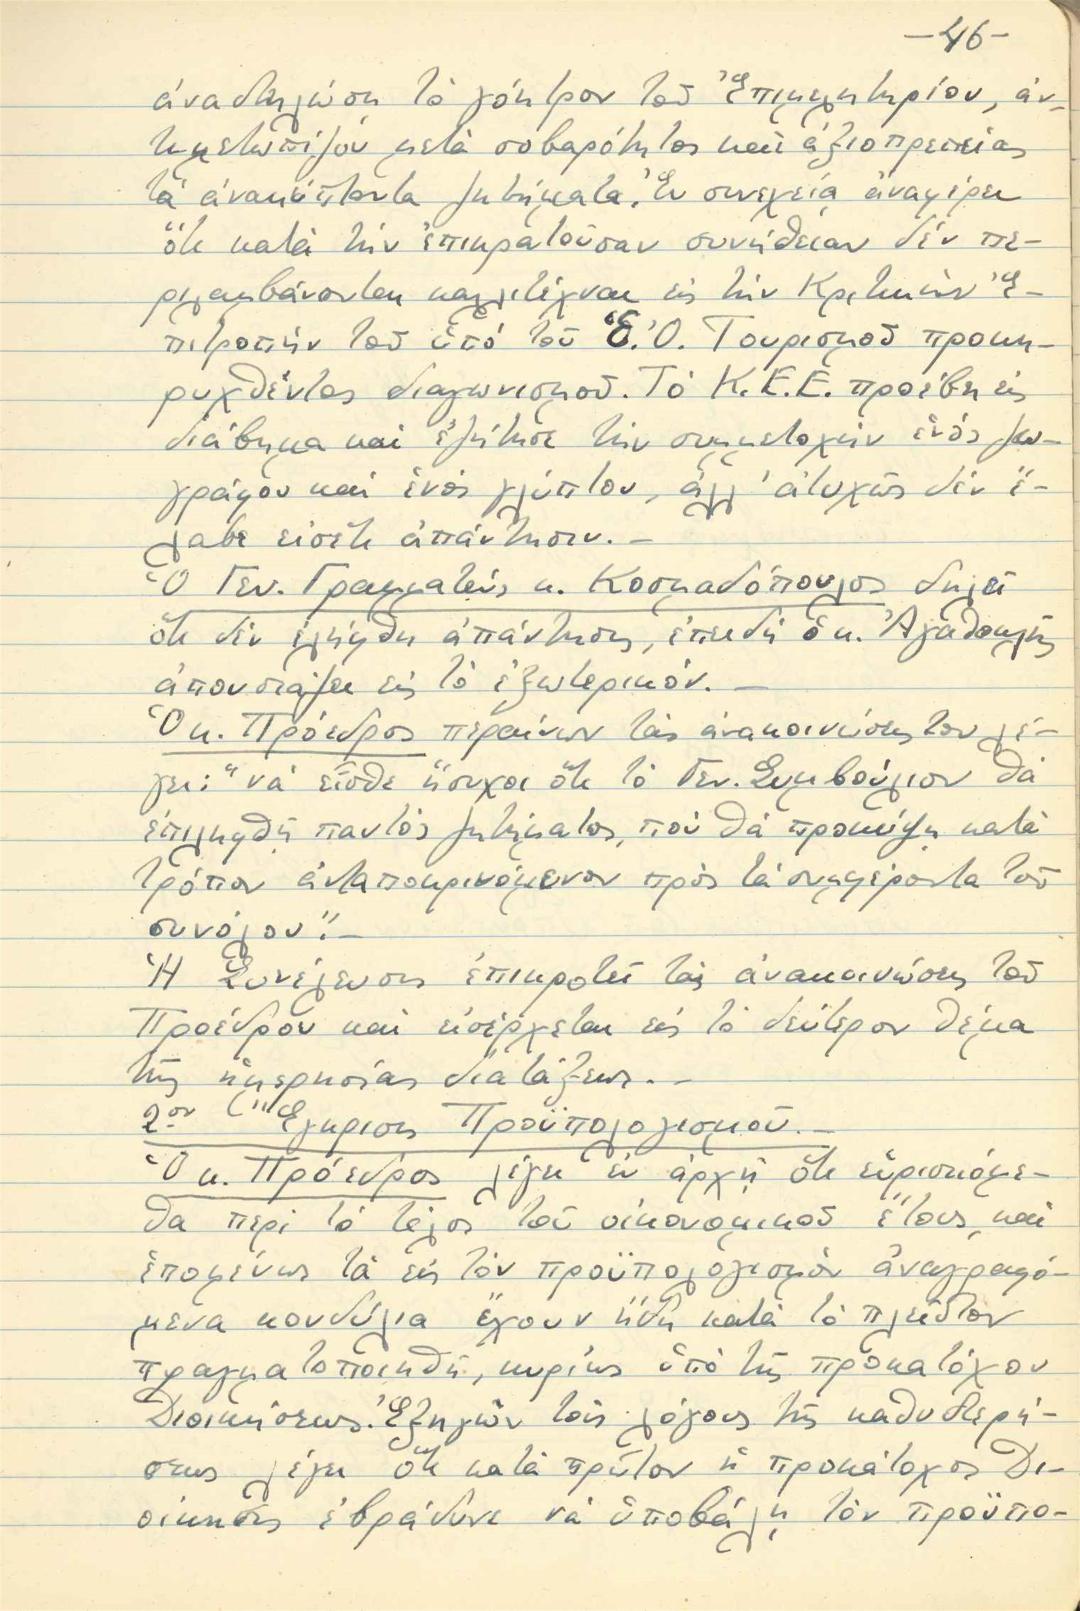 -46-
ἀναστηλώσῃ τὸ γόητρον τοῦ Ἐπιμελητηρίου, ἀν-
τιμετωπίζον μετὰ σοβαρότητος καὶ ἀξιοπρεπείας
τὰ ἀνακύπτοντα ζητήματα. Ἐν συνεχείᾳ ἀναφέρει
ὅτι κατὰ τὴν ἐπικρατοῦσαν συνήθειαν δέν πε-
ριλαμβάνονται καλλιτέχναι εἰς τὴν Κριτικὴν Ἐ-
πιτροπὴν τοῦ ὑπό τοῦ Ἑ.Ὀ. Τουρισμοῦ προκη-
ρυχθέντος διαγωνισμοῦ. Τό Κ.Ε.Ε. προέβη εἰς
διάβημα καὶ ἐζήτησε τὴν συμμετοχὴν ἑνὸς ζω-
γράφου καὶ ἑνὸς γλύπτου, ἀλλ' ἀτυχῶς δέν ἔ-
λαβε εἰσέτι ἀπάντησιν. -
Ὁ Γεν. Γραμματεὺς κ. Κοσμαδόπουλος δηλεῖ
ὅτι δέν ἐλήφθη ἀπάντησις, ἐπειδὴ ὁ κ. Ἀγαθοκλῆς
ἀπουσιάζει εἰς τὸ ἐξωτερικόν. -
Ὁ κ. Πρόεδρος περαίνων τὰς ἀνακοινώσεις του λέ-
γει: "νὰ εἶσθε ἥσυχοι ὅτι τὸ Γεν. Συμβούλιον θὰ
ἐπιληφθῇ παντὸς ζητήματος, πού θὰ προκύψῃ κατὰ
τρόπον ἀνταποκρινόμενον πρὸς τὰ συμφέροντα τοῦ
συνόλου". -
Ἡ Συνέλευσις ἐπικροτεῖ τὰς ἀνακοινώσεις τοῦ
Προέδρου καὶ εἰσέρχεται εἰς τὸ δεύτερον θέμα
τῆς ἡμερησίας διατάξεως. -
2ον Ἔγκρισις Προϋπολογισμοῦ. -
Ὁ κ. Πρόεδρος λέγει ἐν ἀρχῇ ὅτι εὑρισκόμε-
θα περὶ τὸ τέλος τοῦ οἰκονομικοῦ ἔτους, καὶ
ἑπομένως τὰ εἰς τὸν προϋπολογισμόν ἀναγραφό-
μενα κονδύλια ἔχουν ἤδη κατὰ τὸ πλεῖστον
πραγματοποιηθῆ, κυρίως ὑπό τῆς προκατόχου
Διοικήσεως. Ἐξηγῶν τοὺς λόγους τῆς καθυστερή-
σεως λέγει ὅτι κατὰ πρῶτον ἡ προκάτοχος Δι-
οίκησις ἐβράδυνε νὰ ὑποβάλῃ τὸν προϋπο-